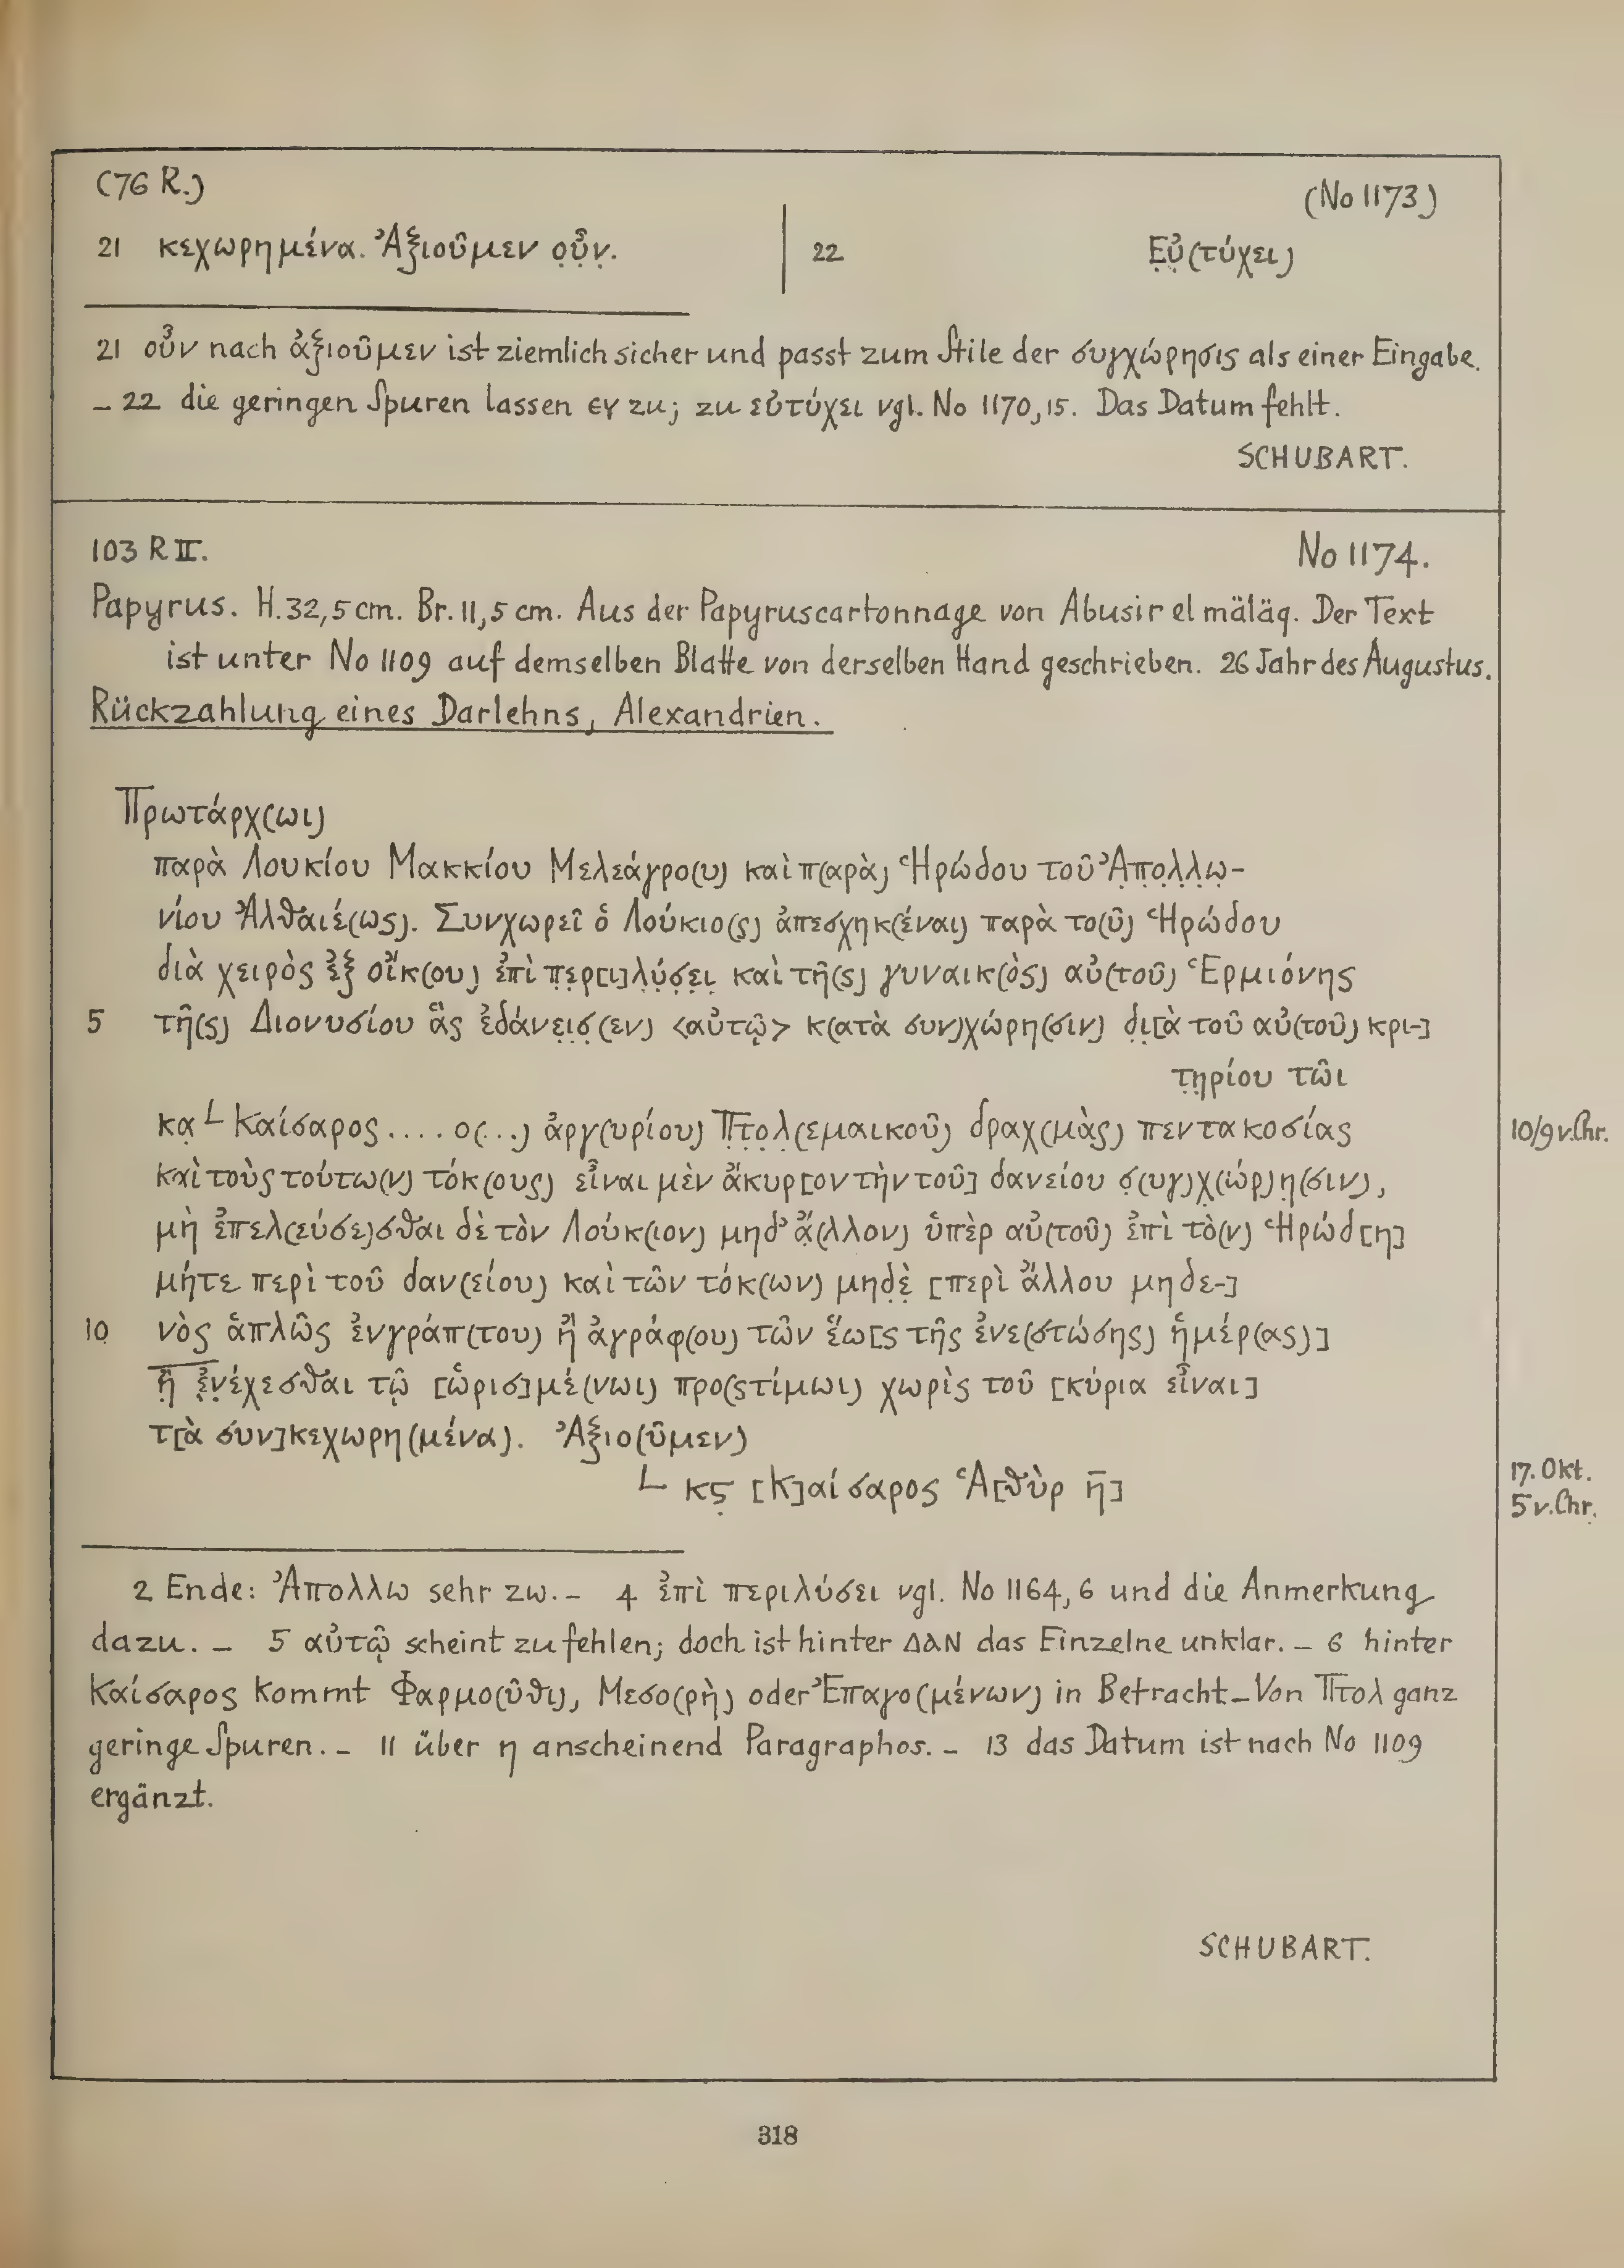 (76 R.)
(No 1173)
21 κεχωρημένα. Ἀξιοῦμεν ο̣ὖ̣ν̣.
22 Ε̣ὐ̣(τύχει)
21 οὖν nach ἀξιοῦμεν ist ziemlich sicher und passt zum Stile der συγχώρησις als einer Eingabe.
– 22 die geringen Spuren lassen ευ zu; zu εὐτύχει vgl. No 1170,15. Das Datum fehlt.
SCHUBART.
103 R II.
No 1174.
Papyrus. H. 32,5 cm. Br. 11,5 cm. Aus der Papyruscartonnage von Abusir el mäläq. Der Text
ist unter No 1109 auf demselben Blatte von derselben Hand geschrieben. 26 Jahr des Augustus.
Rückzahlung eines Darlehns, Alexandrien.
Πρωτάρχ(ωι)
παρὰ Λουκίου Μακκίου Μελεάγρο(υ) καὶ π(αρὰ) Ἡρώδου τοῦ Ἀ̣π̣ο̣λ̣λ̣ω̣-
νίου Ἀλθαιέ(ως). Συνχωρεῖ ὁ Λούκιο(ς) ἀπεσχηκ(έναι) παρὰ το(ῦ) Ἡρώδου
διὰ χειρὸς ἐξ οἴκ(ου) ἐπὶ π̣ε̣ρ[ι]λ̣ύ̣σ̣ε̣ι̣ καὶ τῆ(ς) γυναικ(ὸς) αὐ(τοῦ) Ἑρμιόνης
5 τῆ(ς) Διονυσίου ἃς ἐδάνε̣ι̣σ̣(εν) <αὐτῷ> κ(ατὰ συν)χώρη(σιν) δ̣ι̣[ὰ τοῦ αὐ(τοῦ) κρι-]
τ̣η̣ρίου τῶι
κα̣ L Καίσαρος .... ο(...) ἀργ(υρίου) Π̣τ̣ο̣λ̣(εμαικοῦ) δραχ(μὰς) πεντακοσίας
10/9 v. Chr.
καὶ τοὺς τούτω(ν) τόκ(ους) εἶναι μὲν ἄκυρ[ον τὴν τοῦ] δανείου σ̣(υγ)χ̣(ώρ)η̣(σιν),
μὴ ἐπελ(εύσε)σθαι δὲ τὸν Λούκ(ιον) μηδ’ ἄ̣(λλον) ὑπὲρ αὐ(τοῦ) ἐπὶ τὸ(ν) Ἡρώδ[η]
μήτε περὶ τοῦ δαν(είου) καὶ τῶν τόκ(ων) μηδ̣ὲ̣ [περὶ ἄλλου μηδε-]
10 νὸς ἁπλῶς ἐνγράπ(του) ἢ ἀγράφ(ου) τῶν ἕω[ς τῆς ἐνε(στώσης) ἡμέρ(ας)]
ἢ̣ ἐ̣ν̣έχεσθαι τῷ [ὡρισ]μέ(νωι) προ(στίμωι) χωρὶς τοῦ [κύρια εἶναι]
τ[ὰ συν]κεχωρη(μένα). Ἀξιο(ῦμεν)
L κς̣ [Κ]αίσαρος Ἁ[θὺρ η̄]
17. Okt.
5 v. Chr.
2 Ende: Ἀπολλω sehr zw. – 4 ἐπὶ περιλύσει vgl. No 1164,6 und die Anmerkung
dazu. – 5 αὐτῷ scheint zu fehlen; doch ist hinter ΔΑΝ das Einzelne unklar. – 6 hinter
Καίσαρος kommt Φαρμο(ῦθι), Μεσο(ρὴ) oder Ἐπαγο(μένων) in Betracht – Von Πτολ ganz
geringe Spuren. – 11 über η anscheinend Paragraphos. – 13 das Datum ist nach No 1109
ergänzt.
SCHUBART.
318